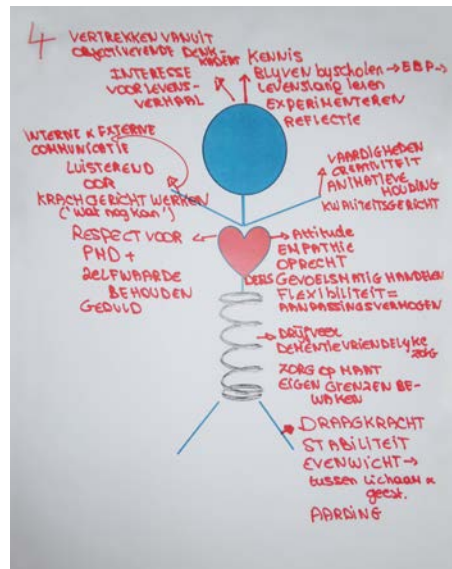 4 VERTREKKEN VANUIT
OBJECTIVERENDE DENK-
KADER
INTERESSE
VOOR LEVENS-
VERHAAL
KENNIS
BLYVEN byscholen → EBP →
Levenslang leren
EXPERIMENTEREN
REFLECTIE
INTERNE & EXTERNE
COMMUNICATIE
LUISTEREND
OOR
KRACHTGERICHT WERKEN
('wat nog kan')
VAARDIGHEDEN
CREATIVITEIT
ANIMATIEVE
HOUDING
KWALITEITSGERICHT
RESPECT VOOR
PMD +
ZELFWAARDE
BEHOUDEN
GEDULD
Attitude
EMPATHIE
OPRECHT
GEVOELSMATIG HANDELEN
FLEXIBILITEIT =
AANPASSINGSVERMOGEN
DRIJFVEER
DEMENTIEVRIENDELYKE
ZORG
ZORG op MAAT
EIGEN GRENZEN BE-
WAKEN
DRAAGKRACHT
STABILITEIT
EVENWICHT →
tussen lichaam &
geest.
AARDING